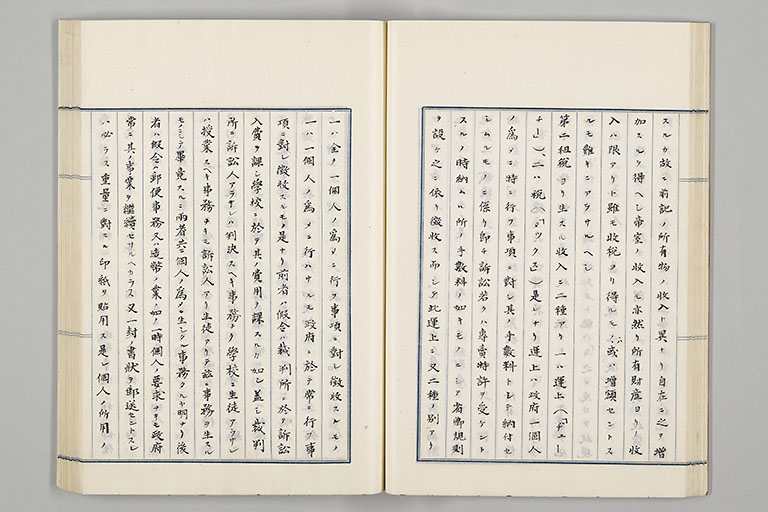 スルカ故ニ前記ノ所有物ノ收入ト異ナリ自在ニ之ヲ增
加スルヲ得ヘシ帝室ノ收入モ亦然リ所有財産ヨリノ收
入ハ限アリト雖モ收税ヨリ得ルモノハ或ハ增額セントス
ルモ難キニアラサルヘシ
第二租税ヨリ生スル收入ニ二種アリ一ハ運上(「ゲビュー
チ」)二ハ税(「 」)是レナリ運上ハ政府一個人
ノ爲メニ特ニ行フ事項ニ對シ其ノ手數料トシテ納付セ
シムルモノニ係リ即チ訴訟若クハ專賣特許ヲ受ケント
スルノ時納ムル所ノ手數料ノ如キモノニシテ省卿規則
ヲ設ケ之ニ依リ徵收ス而シテ此運上ニ又二種ノ別アリ
一ハ全ク一個人ノ爲メニ行フ事項ニ對シ徵收スルモノ
一ハ一個人ノ爲メニ行ハサルモ政府ニ於テ常ニ行フ事
項ニ對シ徵收スルモノ是ナリ前者ハ假令ハ裁判所ニ於テ訴訟
入費ヲ課シ學校ニ於テ其ノ費用ヲ課スルカ如シ蓋シ裁判
所ニ訴訟人アラサレハ判決スヘキ事務ナク學校ニ生徒アラサレ
ハ授業スヘキ事務ナキモ訴訟人アリ生徒アリテ茲ニ事務ヲ生スル
モノニシテ畢竟スルニ兩者共ニ個人ノ爲メニ生シタル事務タルヤ明ナリ後
者ハ假令ハ郵便事務又ハ造幣ノ業ノ如ク一時個人ノ要求ナキモ政府
常ニ其ノ事業ヲ繼續セサルヘカラス又一封ノ書狀ヲ郵送セントスレ
ハ必ラス重量ニ對スル印紙ヲ貼用ス是レ個人ノ所用ノ